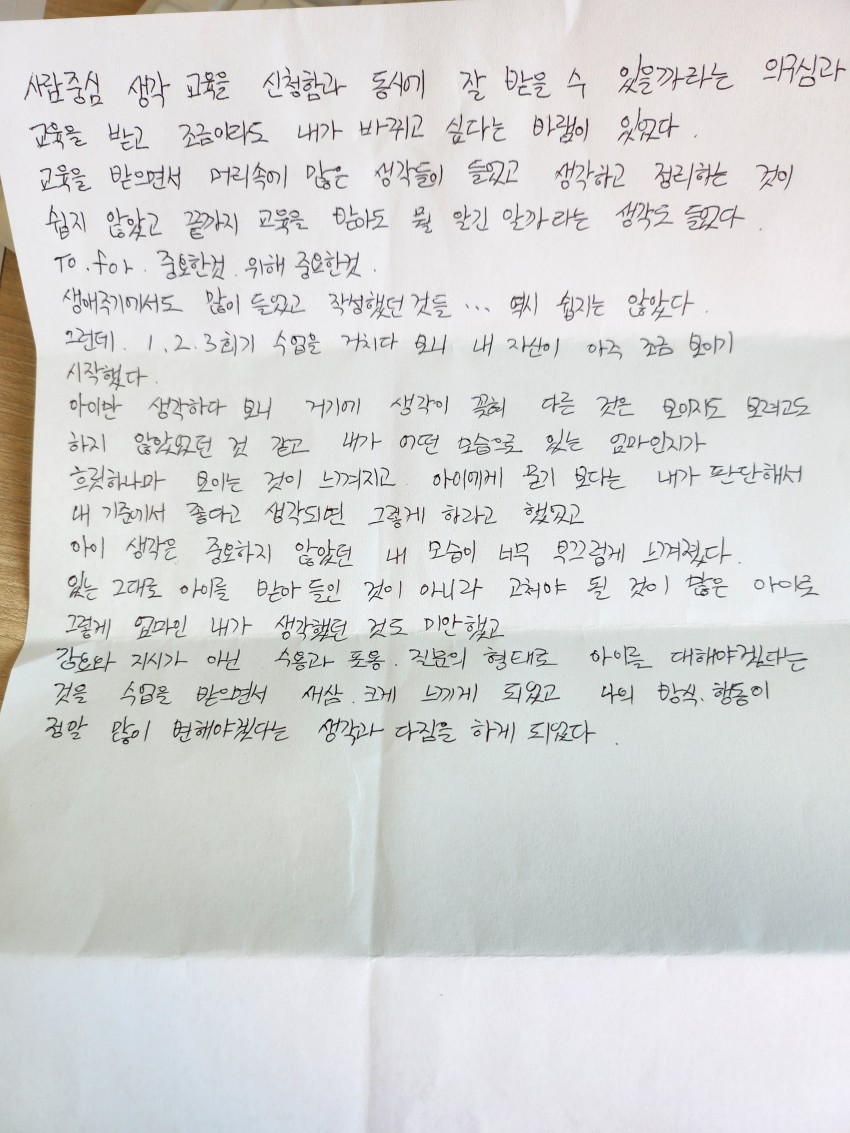 사람중심 생각 교육을 신청함과 동시에 잘 받을 수 있을까라는 의구심과
교육을 받고 조금이라도 내가 바뀌고 싶다는 바램이 있었다.
교육을 받으면서 머리속에 많은 생각들이 들었고 생각하고 정리하는 것이
쉽지 않았고 끝까지 교육을 받아도 뭘 알긴 알까라는 생각도 들었다.
To. for. 중요한것. 위해 중요한것.
생애주기에서도 많이 들었고 작성했던 것들 ... 역시 쉽지는 않았다.
그런데. 1, 2, 3회기 수업을 거치다 보니 내 자신이 아주 조금 보이기
시작했다.
아이만 생각하다 보니 거기에 생각이 꽂혀 다른 것은 보이지도 보려고도
하지 않았었던 것 같고 내가 어떤 모습으로 있는 엄마인지가
흐릿하나마 보이는 것이 느껴지고 아이에게 묻기 보다는 내가 판단해서
내 기준에서 좋다고 생각되면 그렇게 하라고 했었고
아이 생각은 중요하지 않았던 내 모습이 너무 부끄럽게 느껴졌다.
있는 그대로 아이를 받아 들인 것이 아니라 고쳐야 될 것이 많은 아이로
그렇게 엄마인 내가 생각했던 것도 미안했고
강요와 지시가 아닌 수용과 포용. 질문의 형태로 아이를 대해야겠다는
것을 수업을 받으면서 새삼. 크게 느끼게 되었고 나의 방식, 행동이
정말 많이 변해야겠다는 생각과 다짐을 하게 되었다.